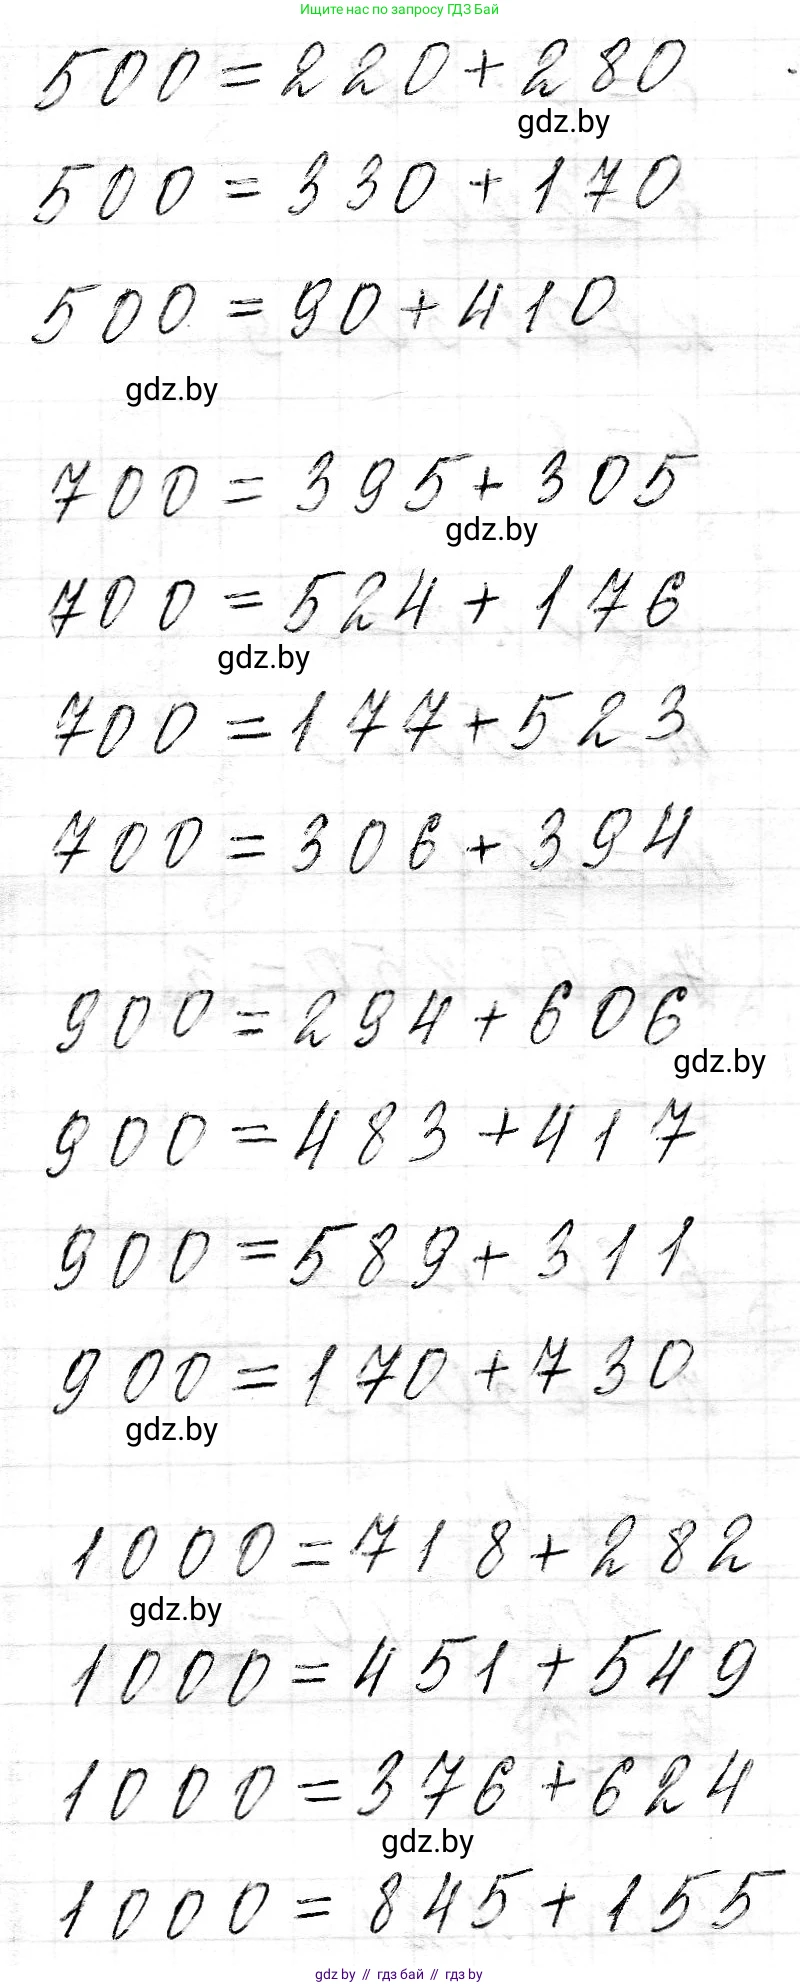 Ищите нас по запросу ГДЗ Бай
500 = 220 + 280
gdz.by
500 = 330 + 170
500 = 90 + 410
gdz.by
700 = 395 + 305
gdz.by
700 = 524 + 176
gdz.by
700 = 177 + 523
700 = 306 + 394
900 = 294 + 606
gdz.by
900 = 483 + 417
900 = 589 + 311
900 = 170 + 730
gdz.by
1000 = 718 + 282
gdz.by
1000 = 451 + 549
1000 = 376 + 624
gdz.by
1000 = 845 + 155
gdz by // гдз бай // гдз by